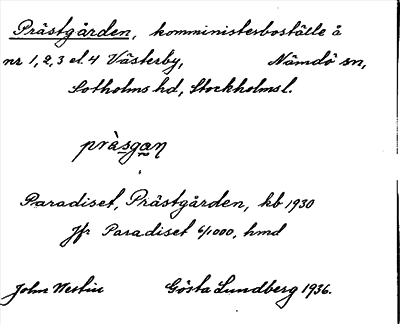 Prästgården, komministerboställe å
nr 1, 2, 3 el. 4 Västerby, Nämdö sn,
Sotholms hd, Stockholms l.
prȧsgan
Paradiset, Prästgården, kb 1930
Jfr Paradiset 6/1000, hmd
John Westin Gösta Lundberg 1936.